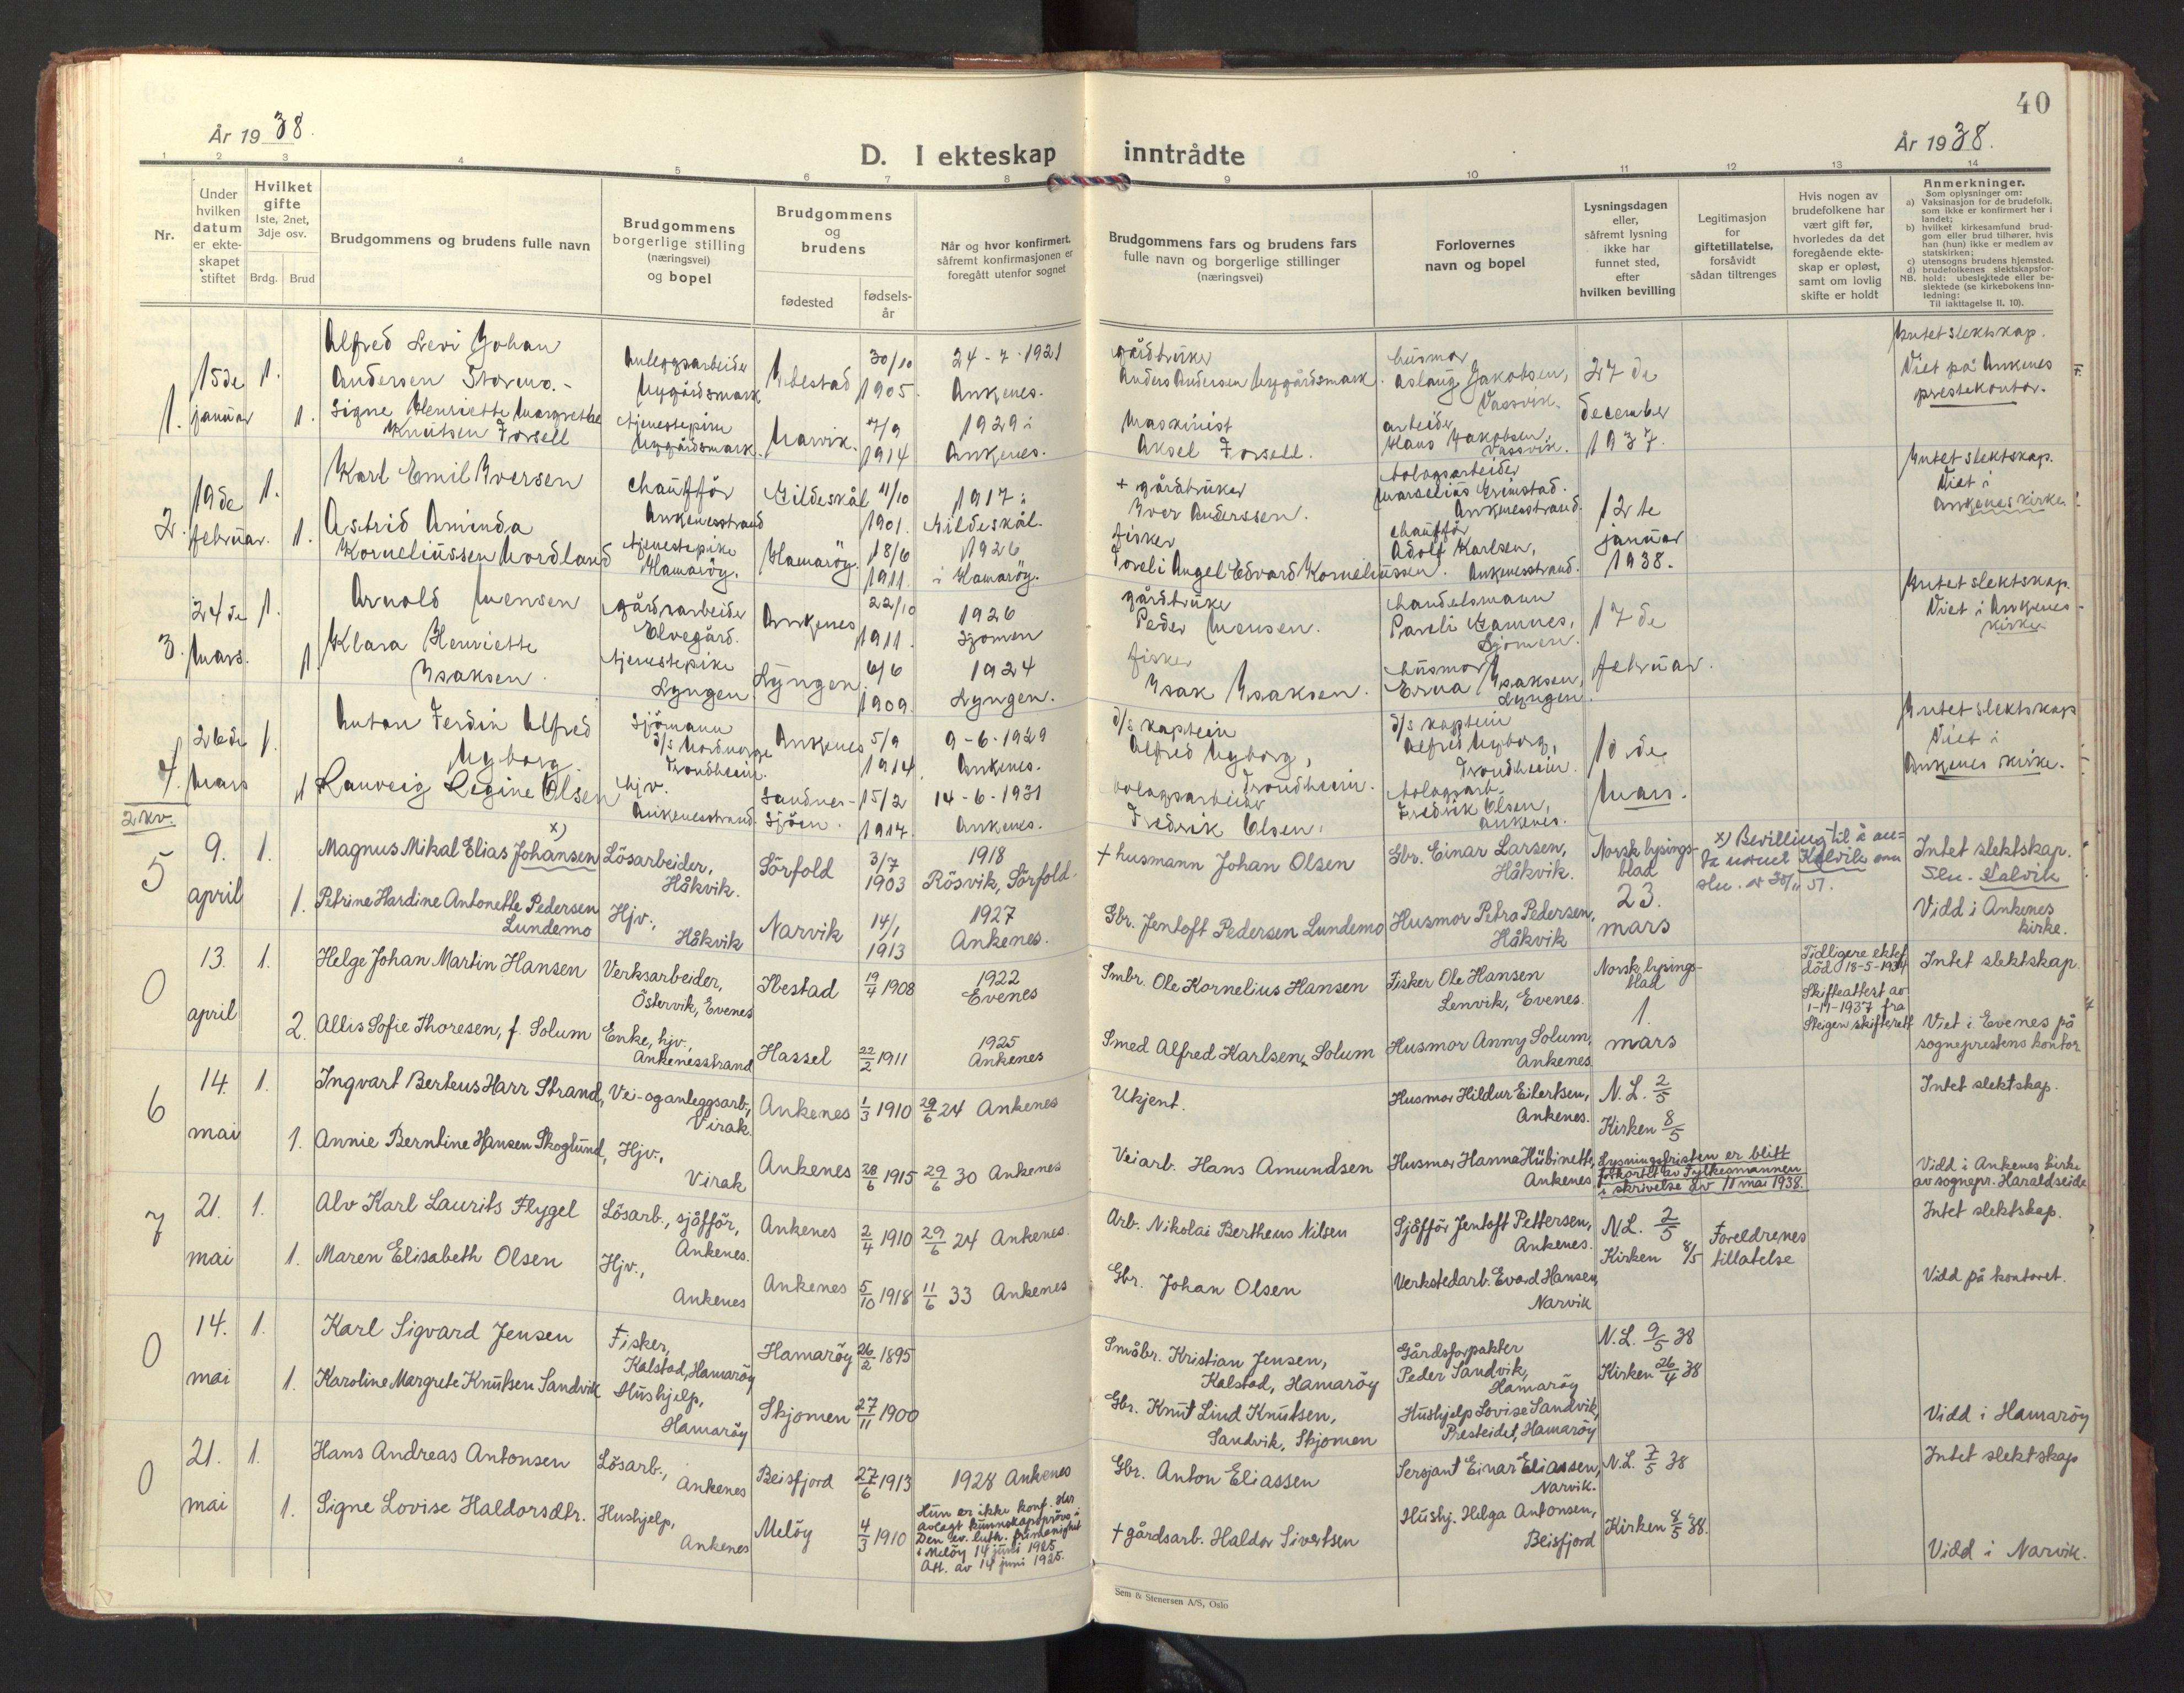 40
År 1938.
År 1938.
D. I ekteskap inntrådte
1 2 3 4 5 6 7 8 9 10 11 12 13 14
Nr.
Under hvilken datum er ekteskapet stiftet
Hvilket gifte 1ste, 2net, 3dje osv.
Brdg. Brud
Brudgommens og brudens fulle navn
Brudgommens borgerlige stilling (næringsvei) og bopel
Brudgommens og brudens
fødested
fødselsår
Når og hvor konfirmert, såfremt konfirmasjonen er foregått utenfor sognet
Brudgommens fars og brudens fars fulle navn og borgerlige stillinger (næringsvei)
Forlovernes navn og bopel
Lysningsdagen eller, såfremt lysning ikke har funnet sted, efter hvilken bevilling
Legitimasjon for giftetillatelse, forsåvidt sådan tiltrenges
Hvis nogen av brudefolkene har vært gift før, hvorledes da det foregående ekteskap er opløst, samt om lovlig skifte er holdt
Anmerkninger.
Som oplysninger om:
a) Vaksinasjon for de brudefolk, som ikke er konfirmert her i landet;
b) hvilket kirkesamfund brudgom eller brud tilhører, hvis han (hun) ikke er medlem av statskirken;
c) utensogns brudens hjemsted.
d) brudefolkenes slektskapsforhold: ubeslektede eller beslektede (se kirkebokens innledning:
NB.
Til iakttagelse II. 10).
1. 15de januar 1. Alfred Levi Johan Andersen Stormo.- Anleggsarbeider Nygårdsmark Ibestad 30/10 1905. 24-7-1921 Ankenes. gårdbruker Anders Andersen Nygårdsmark. husmor Aslaug Jakobsen, Vassvik. 27de december 1937. Intet slektskap. Viet på Ankenes prestekontor.
1. Signe Henriette Margrethe Knutsen Forsell tjenestepike Nygårdsmark. Narvik. 7/9 1914 1929 i Ankenes. Maskinist Aksel Forsell. arbeider Hans Jakobsen, Vassvik.
2. 19de februar. 1. Karl Emil Iversen Chauffør Ankenesstrand Gildeskål 11/10 1901. 1917 i Gildeskål. + gårdbruker Iver Anderssen. bolagsarbeider Marselius Grimstad. Ankenesstrand. 12te januar 1938. Intet slektskap. Viet i Ankenes kirke
1. Astrid Aminda Korneliussen Nordland tjenestepike Hamarøy. Hamarøy. 18/6 1911. 1926 i Hamarøy. fisker Angel Edvard Korneliussen. chauffør Adolf Karlsen, Ankenesstrand.
3. 24de Mars. 1. Arnold Mensen gårdsarbeider Elvegård. Ankenes 22/10 1911. 1926 Sjomen gårdbruker Peder Mensen. handelsmann Pareli Gamnes, Sjomen. 17de februar. Intet slektskap. Viet i Ankenes kirke.
1. Klara Henriette Isaksen. tjenestepike Lyngen Lyngen. 6/6 1909. 1924 Lyngen. fisker Isak Isaksen. husmor Erna Isaksen, Lyngen.
4. 26de Mars 1. Anton Ferdin Alfred Nyborg. Sjømann d/s Nordnorge Trondheim. Ankenes 5/9 1914. 9-6-1929 Ankenes. d/s kaptein Alfred Nyborg, Trondheim. d/s kaptein Alfred Nyborg, Trondheim. 10de Mars. Intet slektskap Viet i Ankenes kirke.
1 Lauveig Regine Olsen hjv. Ankenesstrand Sandnessjøen. 15/2 1914. 14-6-1931 Ankenes. bolagsarbeider Fredrik Olsen. bolagsarb. Fredrik Olsen, Ankenes.
2 kv.
5 9. april 1. Magnus Mikal Elias Johansen x) Lösarbeider, Håkvik. Sörfold 3/7 1903 1918 Rösvik, Sörfold. + husmann Johan Olsen Gbr. Einar Larsen, Håkvik. Norsk lysingsblad 23. mars x) Bevilling til å anta navnet Kalvik som Intet slektskap. Kalvik
1. Petrine Hardine Antonette Pedersen Lundemo Hjv., Håkvik Narvik 14/1 1913 1927 Ankenes. Gbr. Jentoft Pedersen Lundemo Husmor Petra Pedersen, Håkvik Vidd i Ankenes kirke.
0 13. april 1. Helge Johan Martin Hansen Verksarbeider, Östervik, Evenes Ibestad 19/4 1908 1922 Evenes Smbr. Ole Kornelius Hansen Fisker Ole Hansen Lenvik, Evenes. Norsk lysingsblad 1. mars Tidligere ektef. död 18-5-1934 Skifteattest av 1-11-1937 fra Steigen skifterett Intet slektskap.
2. Allis Sofie Thoresen, f. Solum Enke, hjv., Ankenesstrand Hassel 22/2 1911 1925 Ankenes Smed Alfred Karlsen Solum Husmor Anny Solum, Ankenes Viet i Evenes på sogneprestens kontor
6 14. mai 1. Ingvart Berteus Harr Strand, Vei- og anleggsarb., Virak. Ankenes 1/3 1910 29/6 24 Ankenes Ukjent. Husmor Hildur Eilertsen, Ankenes. N.L. 2/5 Kirken 8/5 Intet slektskap.
1. Annie Berntine Hansen Skoglund, Hjv., Virak Ankenes 28/6 1915 29/6 30 Ankenes Veiarb. Hans Amundsen Husmor Hanna Hübinette, Ankenes Lysningsfristen er blitt forkortet av Fylkesmannen i skrivelse av 11 mai 1938. Vidd i Ankenes kirke av sognepr. Haraldseide
7 21. mai 1. Alv Karl Laurits Flygel Lösarb., sjåfför, Ankenes. Ankenes 2/4 1910 29/6 24 Ankenes. Arb. Nikolai Bertheus Nilsen Sjåfför Jentoft Pettersen, Ankenes. N.L. 2/5 Kirken 8/5 Foreldrenes tillatelse Intet slektskap.
1. Maren Elisabeth Olsen Hjv., Ankenes Ankenes 5/10 1918 11/6 33 Ankenes Gbr. Johan Olsen Verkstedarb. Evard Hansen, Narvik Vidd på kontoret.
0 14. mai 1. Karl Sigvard Jensen Fisker, Kalstad, Hamaröy Hamaröy 26/2 1895 Småbr. Kristian Jensen, Kalstad, Hamaröy Gårdsforpakter Peder Sandvik, Hamaröy N.L. 9/5 38 Kirken 26/4 38
1. Karoline Margrete Knutsen Sandvik Hushjelp, Hamaröy Skjomen 27/11 1900 Gbr. Knut Lind Knutsen, Sandvik, Skjomen Hushjelp Lovise Sandvik, Presteidet, Hamaröy Vidd i Hamaröy
0 21. mai 1. Hans Andreas Antonsen Lösarb., Ankenes Beisfjord 27/6 1913 1928 Ankenes Gbr. Anton Eliassen Sersjant Einar Eliassen, Narvik. N.L. 7/5 38 Kirken 8/5 38. Intet slektskap
1. Signe Lovise Haldorsdtr. Hushjelp, Ankenes Melöy 4/3 1910 Hun er ikke konf. Har avlagt kunnskapspröve i Den ev. luth. frimenighet i Melöy 14 juni 1925. Att. av 14 juni 1925. + gårdsarb. Haldor Sivertsen Hushj. Helga Antonsen, Beisfjord Vidd i Narvik.
Sem & Stenersen A/S, Oslo